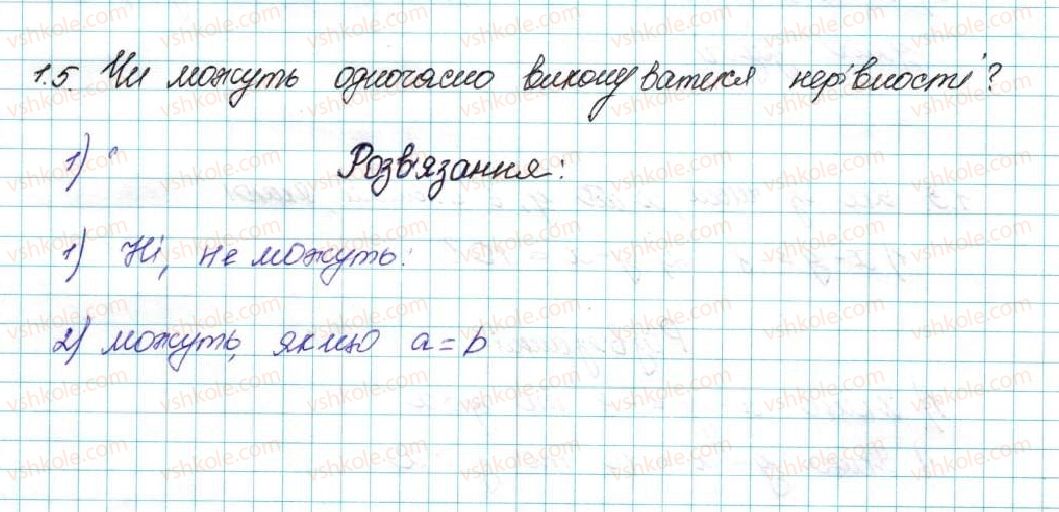 1.5. Чи можуть одночасно виконуватися нерівності?
1) Розв'язання:
1) Ні, не можуть.
2) можуть, якщо a = b